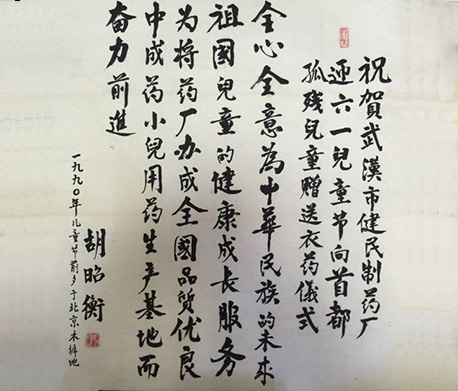 祝賀武漢市健民制药厂
迎六一兒童节向首都
孤残兒童贈送衣药儀式
全心全意為中華民族的未来
祖國兒童的健康成長服务
为将药厂办成全國品质优良
中成药小兒用药生产基地而
奋力前進
胡昭衡
一九九〇年儿童节前夕于北京木樨地